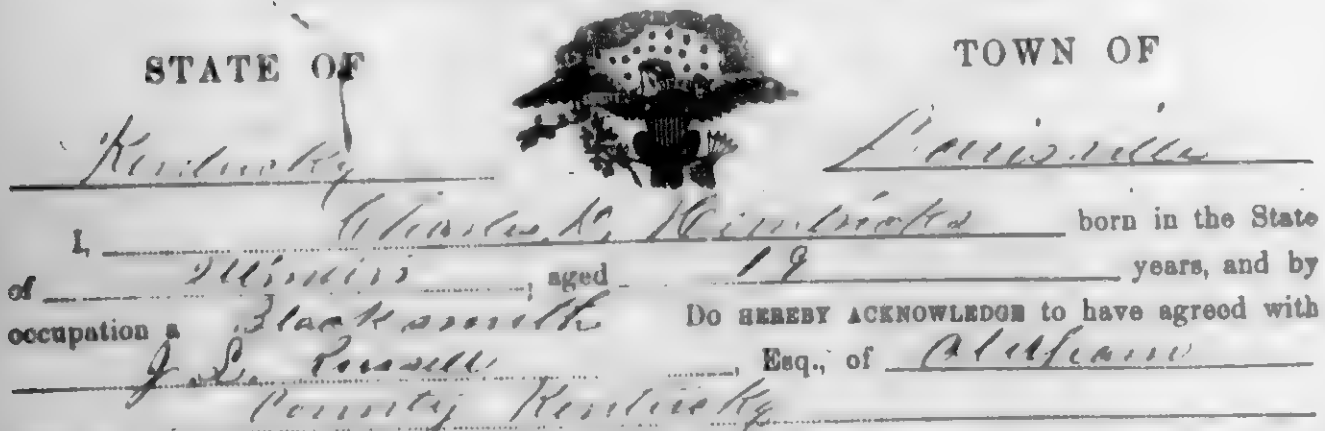 STATE OF
TOWN OF
Kentucky
Louisville
I, Charles born in the State
of Illinois, aged 19 years, and by
occupation a Blacksmith Do HEREBY ACKNOWLEDGE to have agreed with
J. L. Russell, Esq., of Oldham
County Kentucky